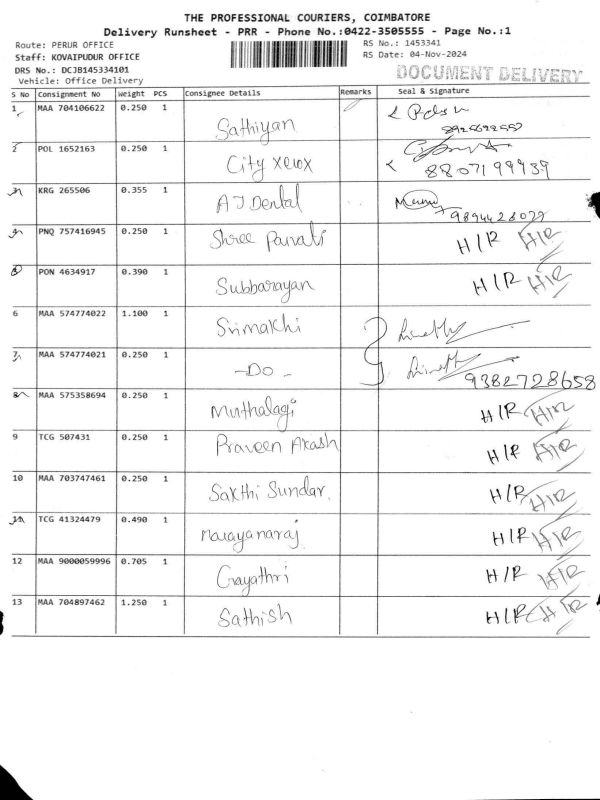 THE PROFESSIONAL COURIERS, COIMBATORE
Delivery Runsheet - PRR - Phone No.:0422-3505555 - Page No.:1
Route: PERUR OFFICE
RS No.: 1453341
Staff: KOVAIPUDUR OFFICE
RS Date: 04-Nov-2024
DRS No.: DCJB145334101
Vehicle: Office Delivery
DOCUMENT DELIVERY
S No Consignment No Weight PCS Consignee Details Remarks Seal & Signature
1 MAA 704106622 0.250 1 Sathiyan
2 POL 1652163 0.250 1 City xerox 8807199939
3 KRG 265506 0.355 1 A J Dental 9894428079
4 PNQ 757416945 0.250 1 Shree Parvati H/R H/R
5 PON 4634917 0.390 1 Subbarayan H/R H/R
6 MAA 574774022 1.100 1 Srimakhi
7 MAA 574774021 0.250 1 -Do- 9382728658
8 MAA 575358694 0.250 1 Muthalagi H/R H/R
9 TCG 507431 0.250 1 Praveen Akash H/R H/R
10 MAA 703747461 0.250 1 Sakthi Sundar. H/R H/R
11 TCG 41324479 0.490 1 Narayanaraj H/R H/R
12 MAA 9000059996 0.705 1 Gayathri H/R H/R
13 MAA 704897462 1.250 1 Sathish H/R H/R